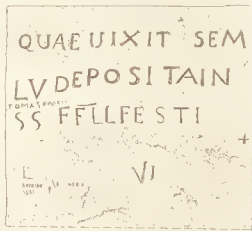 QUAE UIXIT SEM
LV DEPOSITA IN
SS FFLLFESTI
L VI